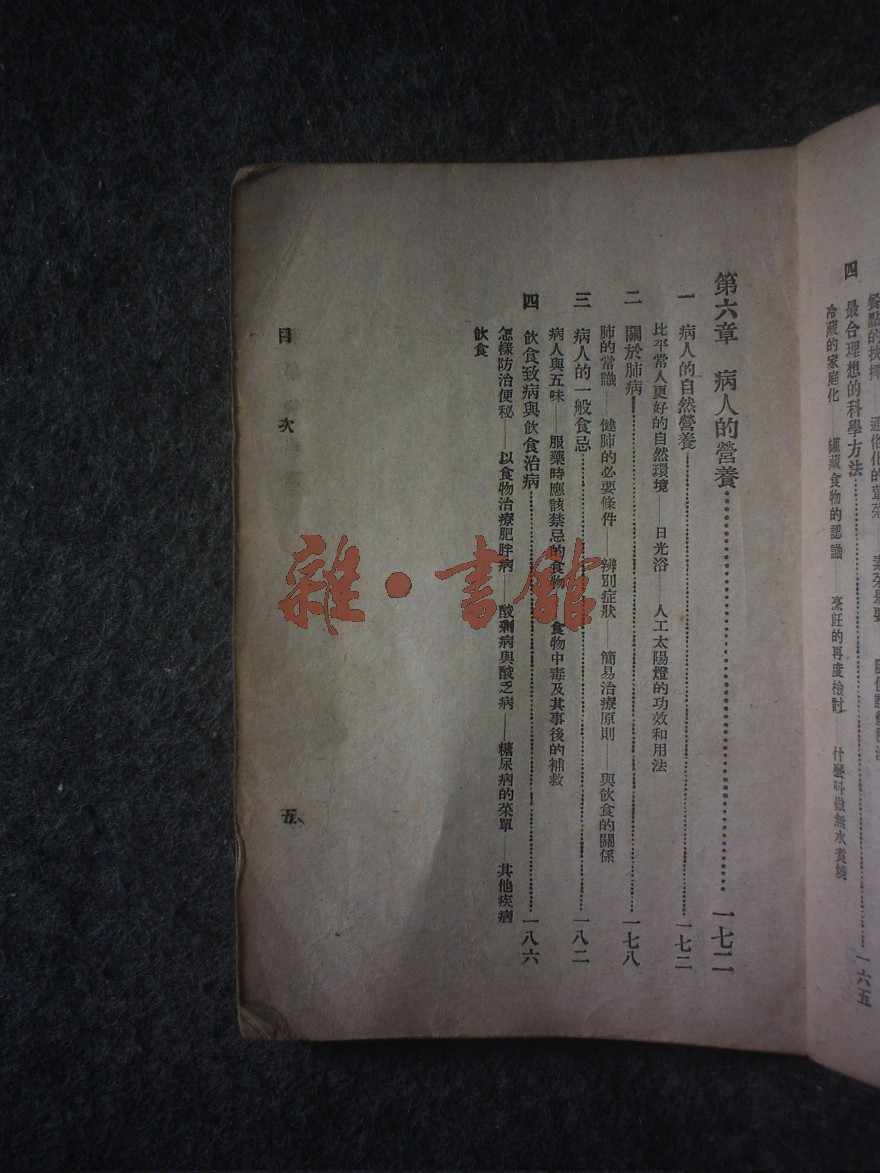 四 最合理想的科學方法……一六五
冷藏的家庭化——罐藏食物的認識——烹飪的再度檢討——什麼叫做無水煑燒
第六章 病人的營養……一七二
一 病人的自然營養……一七二
比平常人更好的自然環境——日光浴——人工太陽燈的功效和用法
二 關於肺病……一七八
肺的常識——健肺的必要條件——辨別症狀——簡易治療原則——與飲食的關係
三 病人的一般食忌……一八二
病人與五味——服藥時應該禁忌的食物——食物中毒及其事後的補救
四 飲食致病與飲食治病……一八六
怎樣防治便秘——以食物治療肥胖病——酸剩病與酸乏病——糖尿病的菜單——其他疾病
飲食
目次
五
雜·書館